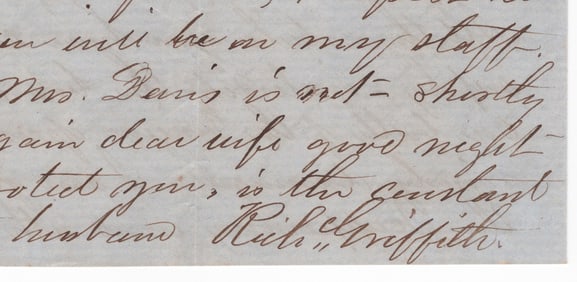 will be on my staff.
Mrs. Davis is not = shortly
gain dear wife good night
otect you, is the constant
husband Rich,, Griffith.